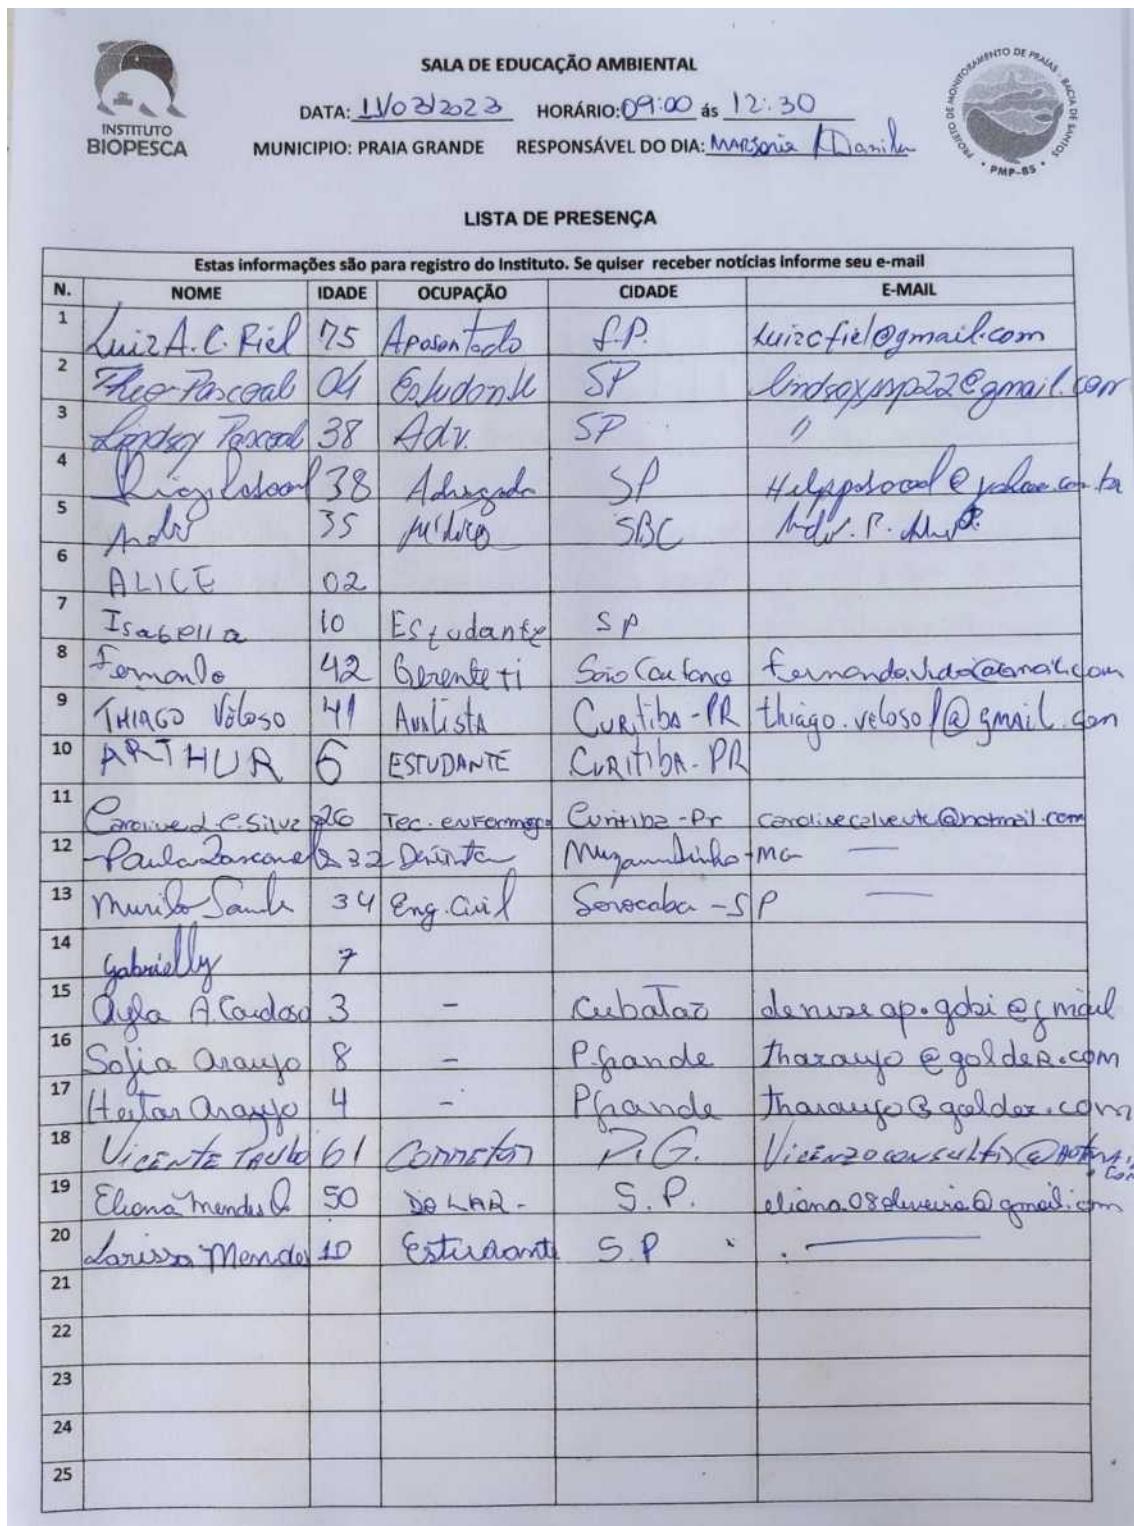 INSTITUTO
BIOPESCA
SALA DE EDUCAÇÃO AMBIENTAL
DATA: 11/03/2023 HORÁRIO: 09:00 ás 12:30
MUNICIPIO: PRAIA GRANDE RESPONSÁVEL DO DIA: Marjorie / Danilo
PROJETO DE MONITORAMENTO DE PRAIAS - BACIA DE SANTOS
• PMP-BS •
LISTA DE PRESENÇA
Estas informações são para registro do Instituto. Se quiser receber notícias informe seu e-mail
N. NOME IDADE OCUPAÇÃO CIDADE E-MAIL
1 Luiz A. C. Fiel 75 Aposentado S.P. luizcfiel@gmail.com
2 Theo Pascoal 04 Estudante SP @gmail.com
3 Lindsay Pascoal 38 Adv. SP "
4 38 Advogada SP
5 André 35 Médico SBC
6 ALICE 02
7 Isabella 10 Estudante SP
8 Fernando 42 Gerente ti São Caetano
9 THIAGO Veloso 41 Analista Curitiba-PR thiago.velosof@gmail.com
10 ARTHUR 6 ESTUDANTE CURITIBA-PR
11 Caroline d. C. Silva 26 Tec. enfermagem Curitiba-Pr carolinecalvente@hotmail.com
12 Paula 32 Dentista Muzambinho-MG —
13 Murilo 34 Eng. Civil Sorocaba-SP —
14 Gabrielly 7
15 Ayla A. Cardoso 3 - Cubatão denise.ap.gobi@gmail
16 Sofia Araujo 8 - P. Grande tharaujo@golder.com
17 Heitor Araujo 4 - P Grande tharaujo@golder.com
18 VICENTE PAULO 61 CORRETOR P.G.
19 Eliana Mendes O. 50 DO LAR- S.P. eliana08oliveira@gmail.com
20 Larissa Mendes 10 Estudante S.P —
21
22
23
24
25